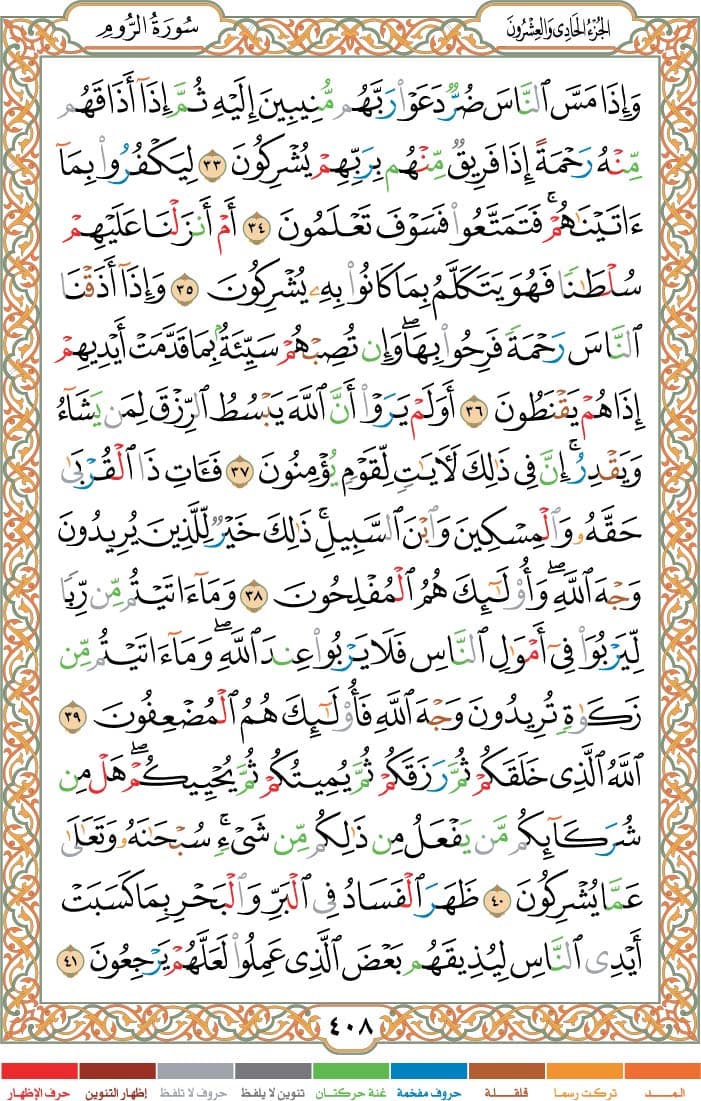 الجُزْءُ الحَادِى وَالعِشْرُونَ
سُورَةُ الرُّومِ
وَإِذَا مَسَّ ٱلنَّاسَ ضُرٌّ دَعَوْا۟ رَبَّهُم مُّنِيبِينَ إِلَيْهِ ثُمَّ إِذَآ أَذَاقَهُم
مِّنْهُ رَحْمَةً إِذَا فَرِيقٌ مِّنْهُم بِرَبِّهِمْ يُشْرِكُونَ ٣٣ لِيَكْفُرُوا۟ بِمَآ
ءَاتَيْنَٰهُمْ ۚ فَتَمَتَّعُوا۟ فَسَوْفَ تَعْلَمُونَ ٣٤ أَمْ أَنزَلْنَا عَلَيْهِمْ
سُلْطَٰنًا فَهُوَ يَتَكَلَّمُ بِمَا كَانُوا۟ بِهِۦ يُشْرِكُونَ ٣٥ وَإِذَآ أَذَقْنَا
ٱلنَّاسَ رَحْمَةً فَرِحُوا۟ بِهَا ۖ وَإِن تُصِبْهُمْ سَيِّئَةٌۢ بِمَا قَدَّمَتْ أَيْدِيهِمْ
إِذَا هُمْ يَقْنَطُونَ ٣٦ أَوَلَمْ يَرَوْا۟ أَنَّ ٱللَّهَ يَبْسُطُ ٱلرِّزْقَ لِمَن يَشَآءُ
وَيَقْدِرُ ۚ إِنَّ فِى ذَٰلِكَ لَءَايَٰتٍ لِّقَوْمٍ يُؤْمِنُونَ ٣٧ فَـَٔاتِ ذَا ٱلْقُرْبَىٰ
حَقَّهُۥ وَٱلْمِسْكِينَ وَٱبْنَ ٱلسَّبِيلِ ۚ ذَٰلِكَ خَيْرٌ لِّلَّذِينَ يُرِيدُونَ
وَجْهَ ٱللَّهِ ۖ وَأُو۟لَٰٓئِكَ هُمُ ٱلْمُفْلِحُونَ ٣٨ وَمَآ ءَاتَيْتُم مِّن رِّبًا
لِّيَرْبُوَا۟ فِىٓ أَمْوَٰلِ ٱلنَّاسِ فَلَا يَرْبُوا۟ عِندَ ٱللَّهِ ۖ وَمَآ ءَاتَيْتُم مِّن
زَكَوٰةٍ تُرِيدُونَ وَجْهَ ٱللَّهِ فَأُو۟لَٰٓئِكَ هُمُ ٱلْمُضْعِفُونَ ٣٩
ٱللَّهُ ٱلَّذِى خَلَقَكُمْ ثُمَّ رَزَقَكُمْ ثُمَّ يُمِيتُكُمْ ثُمَّ يُحْيِيكُمْ ۖ هَلْ مِن
شُرَكَآئِكُم مَّن يَفْعَلُ مِن ذَٰلِكُم مِّن شَىْءٍ ۚ سُبْحَٰنَهُۥ وَتَعَٰلَىٰ
عَمَّا يُشْرِكُونَ ٤٠ ظَهَرَ ٱلْفَسَادُ فِى ٱلْبَرِّ وَٱلْبَحْرِ بِمَا كَسَبَتْ
أَيْدِى ٱلنَّاسِ لِيُذِيقَهُم بَعْضَ ٱلَّذِى عَمِلُوا۟ لَعَلَّهُمْ يَرْجِعُونَ ٤١
٤٠٨
المــــد تركت رسما قلقـــلة حروف مفخمة غنة حركتـان تنوين لا يلفظ حروف لا تلفظ إظهار التنوين حرف الإظهار